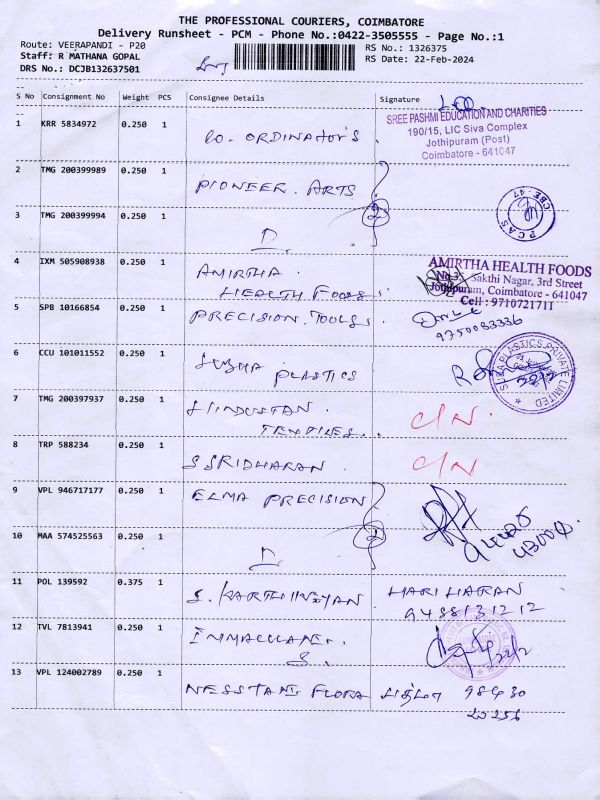 THE PROFESSIONAL COURIERS, COIMBATORE
Delivery Runsheet - PCM - Phone No.:0422-3505555 - Page No.:1
Route: VEERAPANDI - P20
RS No.: 1326375
Staff: R MATHANA GOPAL
RS Date: 22-Feb-2024
DRS No.: DCJB132637501
S No Consignment No Weight PCS Consignee Details Signature
1 KRR 5834972 0.250 1 CO. ORDINATOR'S
SREE PASHMI EDUCATION AND CHARITIES
190/15, LIC Siva Complex
Jothipuram (Post)
Coimbatore - 641047
2 TMG 200399989 0.250 1 PIONEER. ARTS
3 TMG 200399994 0.250 1 D. 2
PCAS CBE-47
4 IXM 505908938 0.250 1 AMIRTHA.
HEALTH. FOODS.
AMIRTHA HEALTH FOODS
No.35, Sakthi Nagar, 3rd Street
Jothipuram, Coimbatore - 641047
Cell : 9710721711
5 SPB 10166854 0.250 1 PRECISION. TOOLS.
9750083336
6 CCU 101011552 0.250 1 SUBHA PLASTICS
PLASTICS PRIVATE LIMITED
7 TMG 200397937 0.250 1 HINDUSTAN.
TEXTILES. C/N.
8 TRP 588234 0.250 1 S SRIDHARAN. C/N
9 VPL 946717177 0.250 1 ELMA PRECISION
10 MAA 574525563 0.250 1 D 2
11 POL 139592 0.375 1 S. KARTHIKEYAN HARI HARAN
9488131212
12 TVL 7813941 0.250 1 IMMACULATE.
S. 22/2
13 VPL 124002789 0.250 1 FLORA பத்மா 98430
20256